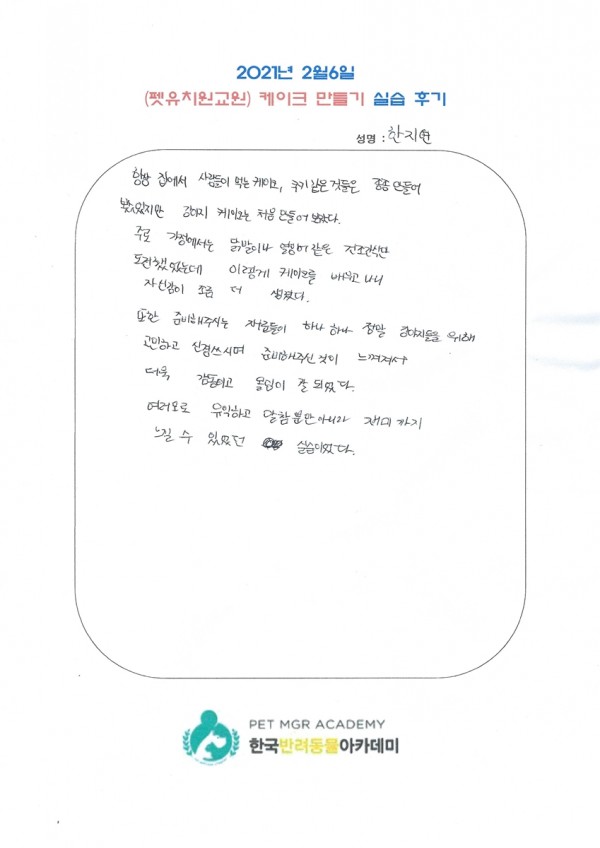 2021년 2월6일
(펫유치원교원) 케이크 만들기 실습 후기
성명 : 한지연
항상 집에서 사람들이 먹는 케이크, 쿠키 같은 것들은 종종 만들어
봤었지만 강아지 케이크는 처음 만들어 봤다.
주로 가정에서는 닭발이나 열빙어 같은 건조간식만
도전했었는데 이렇게 케이크를 배우고 나니
자신감이 조금 더 생겼다.
또한 준비해주시는 재료들이 하나 하나 정말 강아지들을 위해
고민하고 신경쓰시며 준비해주신 것이 느껴져서
더욱 감동되고 몰입이 잘 되었다.
여러모로 유익하고 알참 뿐만 아니라 재미 까지
느낄 수 있었던 실습이었다.
PET MGR ACADEMY
한국반려동물아카데미